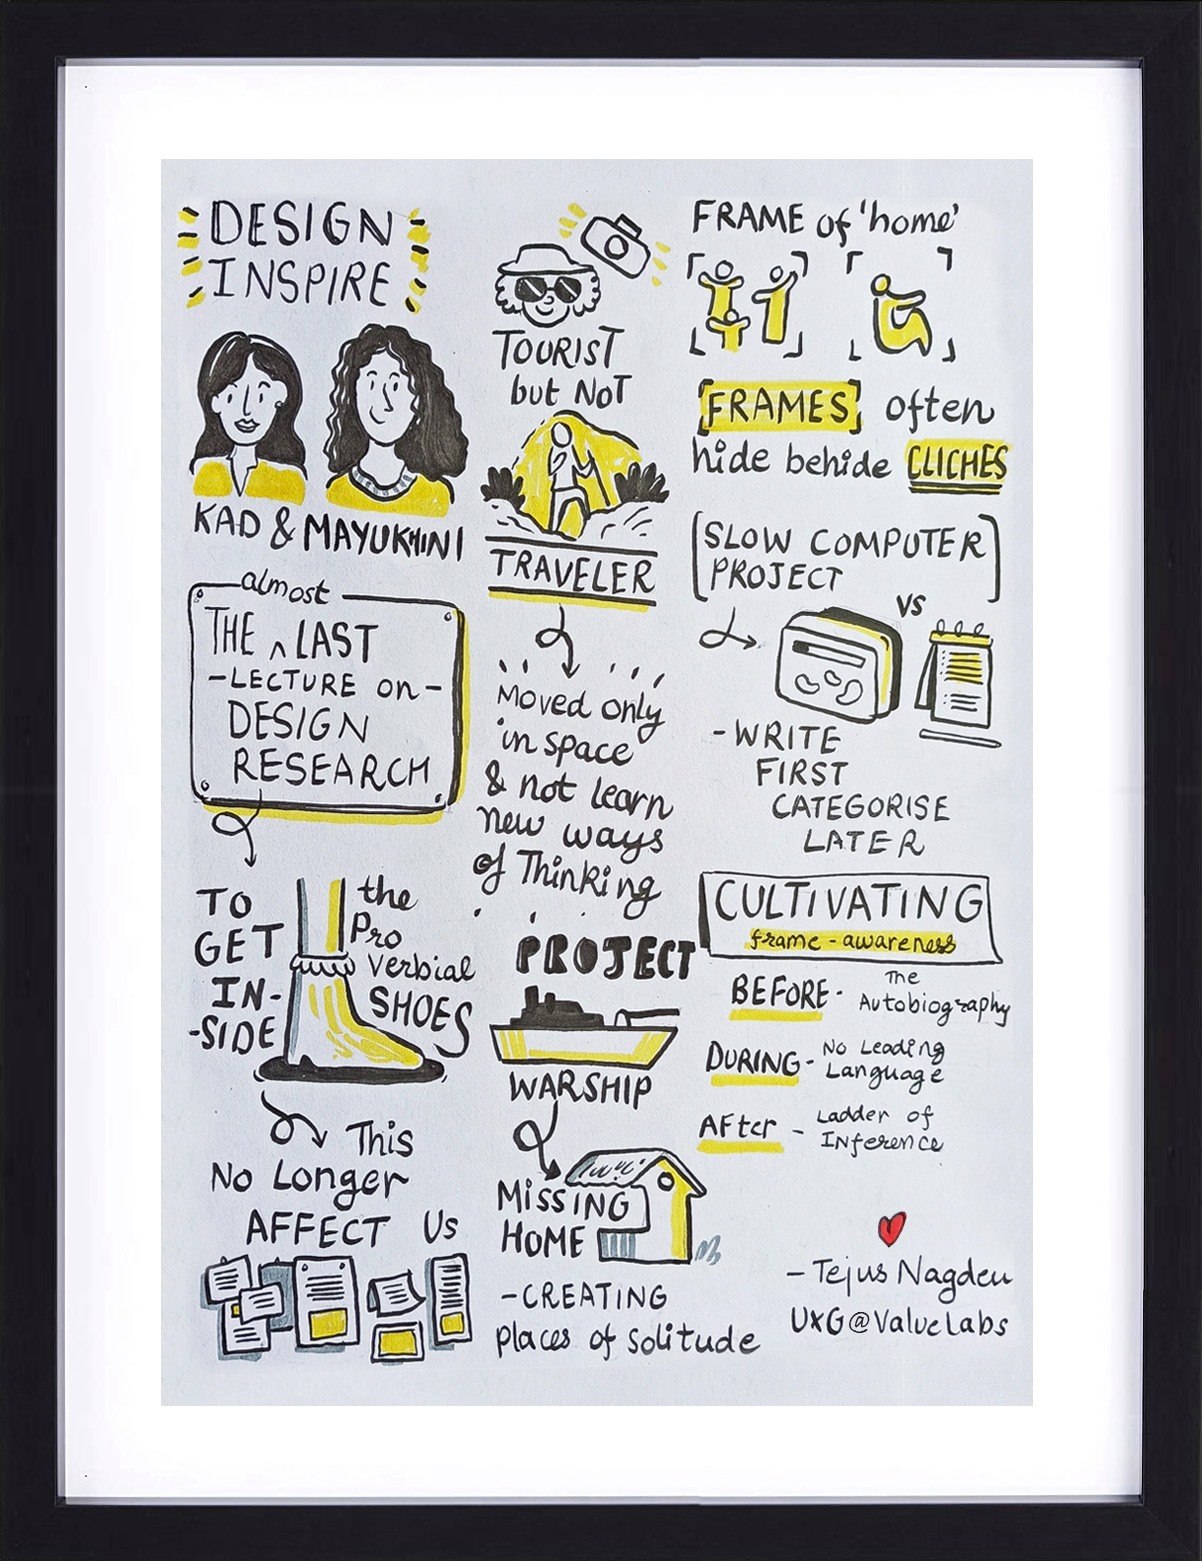 DESIGN
INSPIRE
KAD & MAYUKHINI
almost
THE ^ LAST
-LECTURE on-
DESIGN
RESEARCH
TO
GET
IN-
-SIDE
the
Pro
verbial
SHOES
This
No Longer
AFFECT Us
TOURIST
but NOT
TRAVELER
Moved only
in space
& not learn
new ways
of Thinking
PROJECT
WARSHIP
MISSING
HOME
-CREATING
places of solitude
FRAME of 'home'
[FRAMES] often
hide behide CLICHES
[SLOW COMPUTER
PROJECT]
VS
-WRITE
FIRST
CATEGORISE
LATER
CULTIVATING
frame-awareness
BEFORE- The
Autobiography
DURING- No Leading
Language
AFter - Ladder of
Inference
- Tejus Nagdeu
UXG@ValueLabs